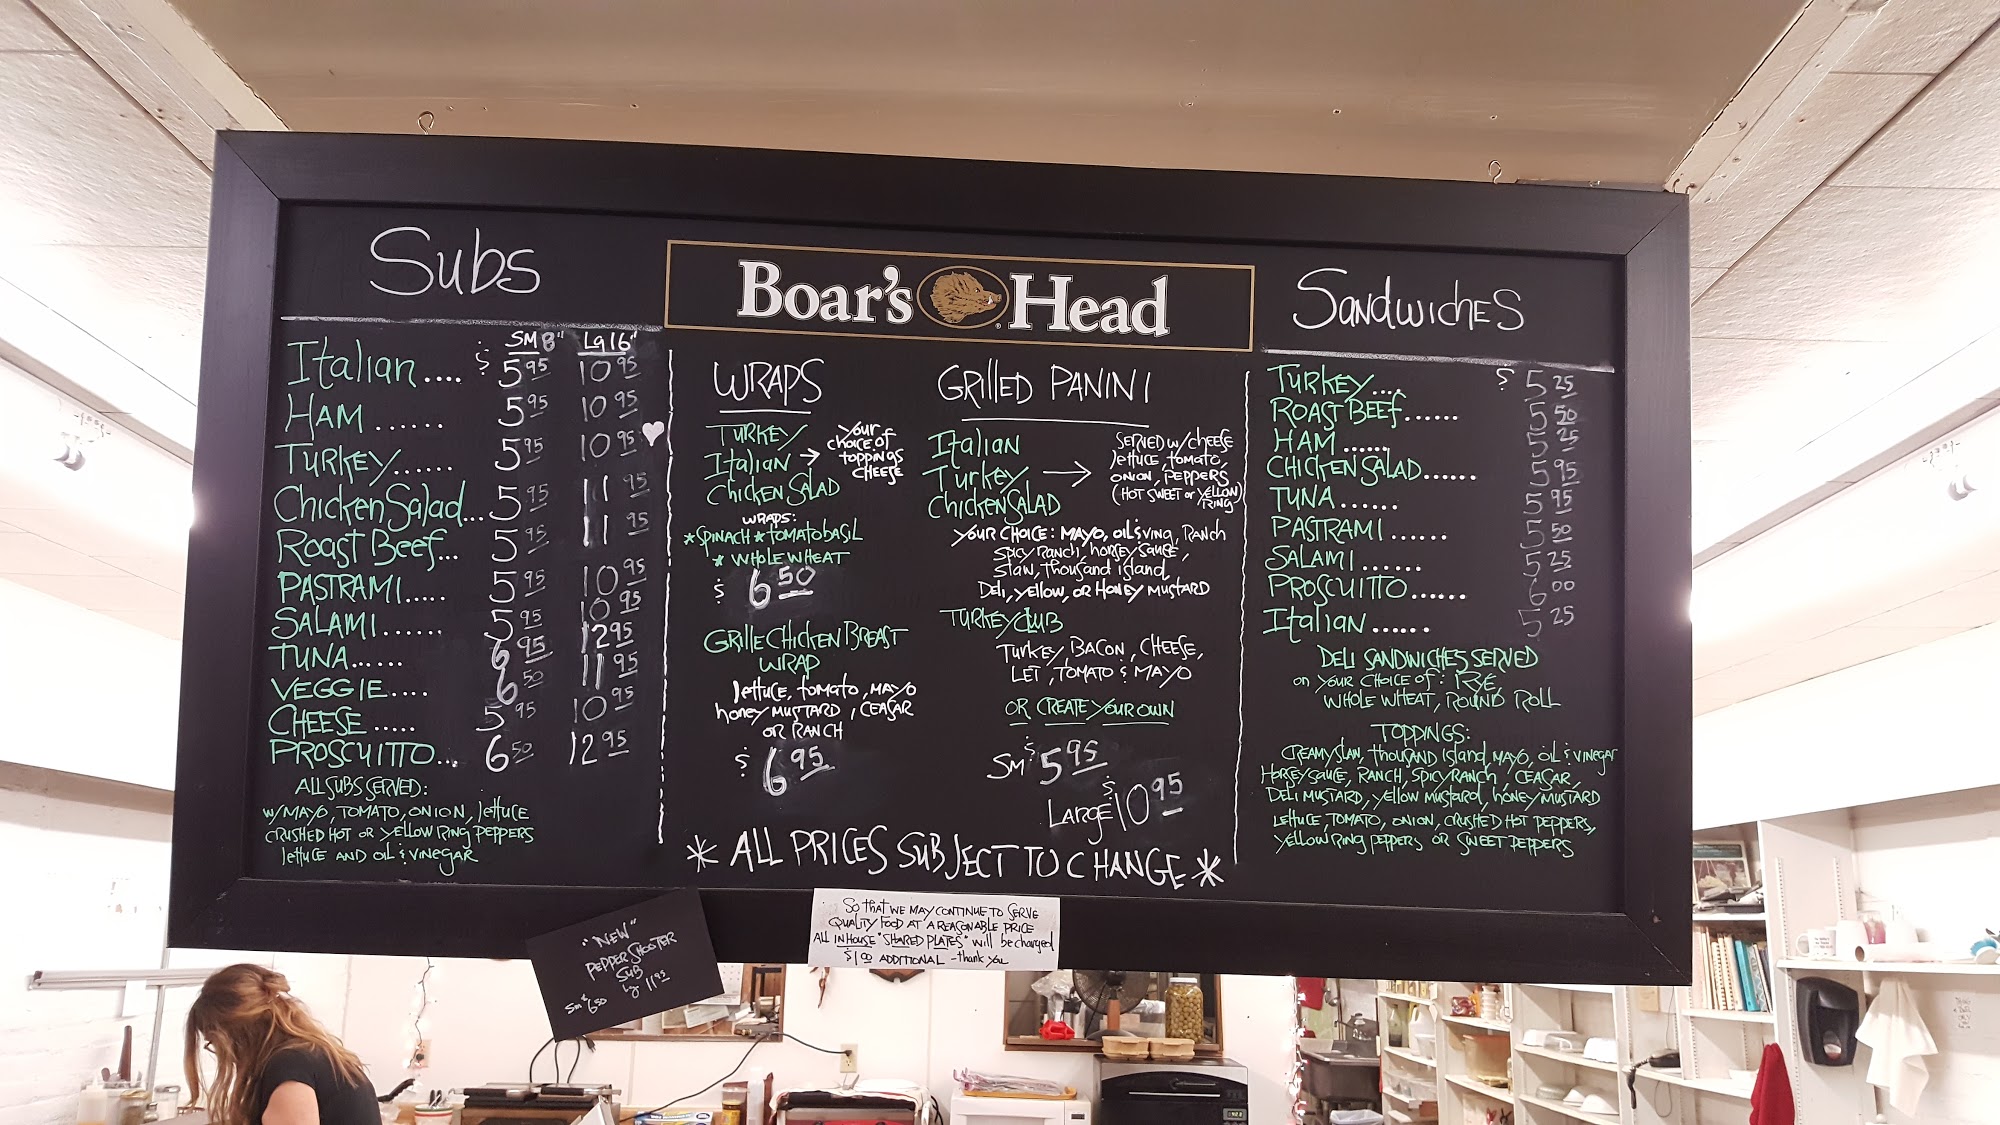 Subs
SM 8" Lg 16"
Italian.... $ 5 95 10 95
HAM ...... 5 95 10 95
TURKEY...... 5 95 10 95
Chicken Salad... 5 95 11 95
Roast Beef... 5 95 11 95
PASTRAMI..... 5 95 10 95
SALAMI...... 5 95 10 95
TUNA...... 6 95 12 95
VEGGIE..... 6 50 11 95
CHEESE ..... 5 95 10 95
PROSCUITTO... 6 50 12 95
ALL SUBS SERVED:
W/MAYO, TOMATO, ONION, lettuce
CRUSHED HOT OR YELLOW RING PEPPERS
lettuce AND OIL & VINEGAR
Boar's Head
WRAPS
TURKEY
Italian →
CHICKEN SALAD
YOUR
choice of
toppings
CHEESE
WRAPS:
*SPINACH *TOMATO BASIL
* WHOLE WHEAT
$ 6 50
GRILLE CHICKEN BREAST
WRAP
lettuce, tomato, MAYO
honey MUSTARD, CEASAR
OR RANCH
$ 6 95
GRILLED PANINI
Italian
Turkey →
CHICKEN SALAD
SERVED W/ CHEESE
lettuce, tomato,
ONION, PEPPERS
(HOT SWEET OR YELLOW)
RING
YOUR CHOICE: MAYO, OIL & VING, RANCH
SPICY RANCH, HORSEY SAUCE,
Slaw, thousand island,
DELI, YELLOW, OR HONEY MUSTARD
TURKEY CLUB
TURKEY, BACON, CHEESE,
LET, TOMATO & MAYO
OR CREATE YOUR OWN
SM $ 5 95
LARGE $ 10 95
* ALL PRICES SUBJECT TO CHANGE *
SANDWICHES
TURKEY.... $ 5 25
ROAST BEEF...... 5 50
HAM ...... 5 25
CHICKEN SALAD...... 5 95
TUNA ...... 5 95
PASTRAMI ...... 5 50
SALAMI...... 5 25
PROSCUITTO...... 6 00
Italian ...... 5 25
DELI SANDWICHES SERVED
ON YOUR CHOICE OF: RYE,
WHOLE WHEAT, ROUND ROLL
TOPPINGS:
CREAMY SLAW, THOUSAND ISLAND, MAYO, OIL & VINEGAR
HORSEY SAUCE, RANCH, SPICY RANCH, CEASAR,
DELI MUSTARD, YELLOW MUSTARD, HONEY MUSTARD
LETTUCE, TOMATO, ONION, CRUSHED HOT PEPPERS,
YELLOW RING PEPPERS OR SWEET PEPPERS
"NEW"
PEPPER SHOOTER
SUB
SM $6 50 Lg 11 95
SO THAT WE MAY CONTINUE TO SERVE
QUALITY FOOD AT A REASONABLE PRICE
ALL IN HOUSE "SHARED PLATES" will be charged
$1 00 ADDITIONAL - thank you